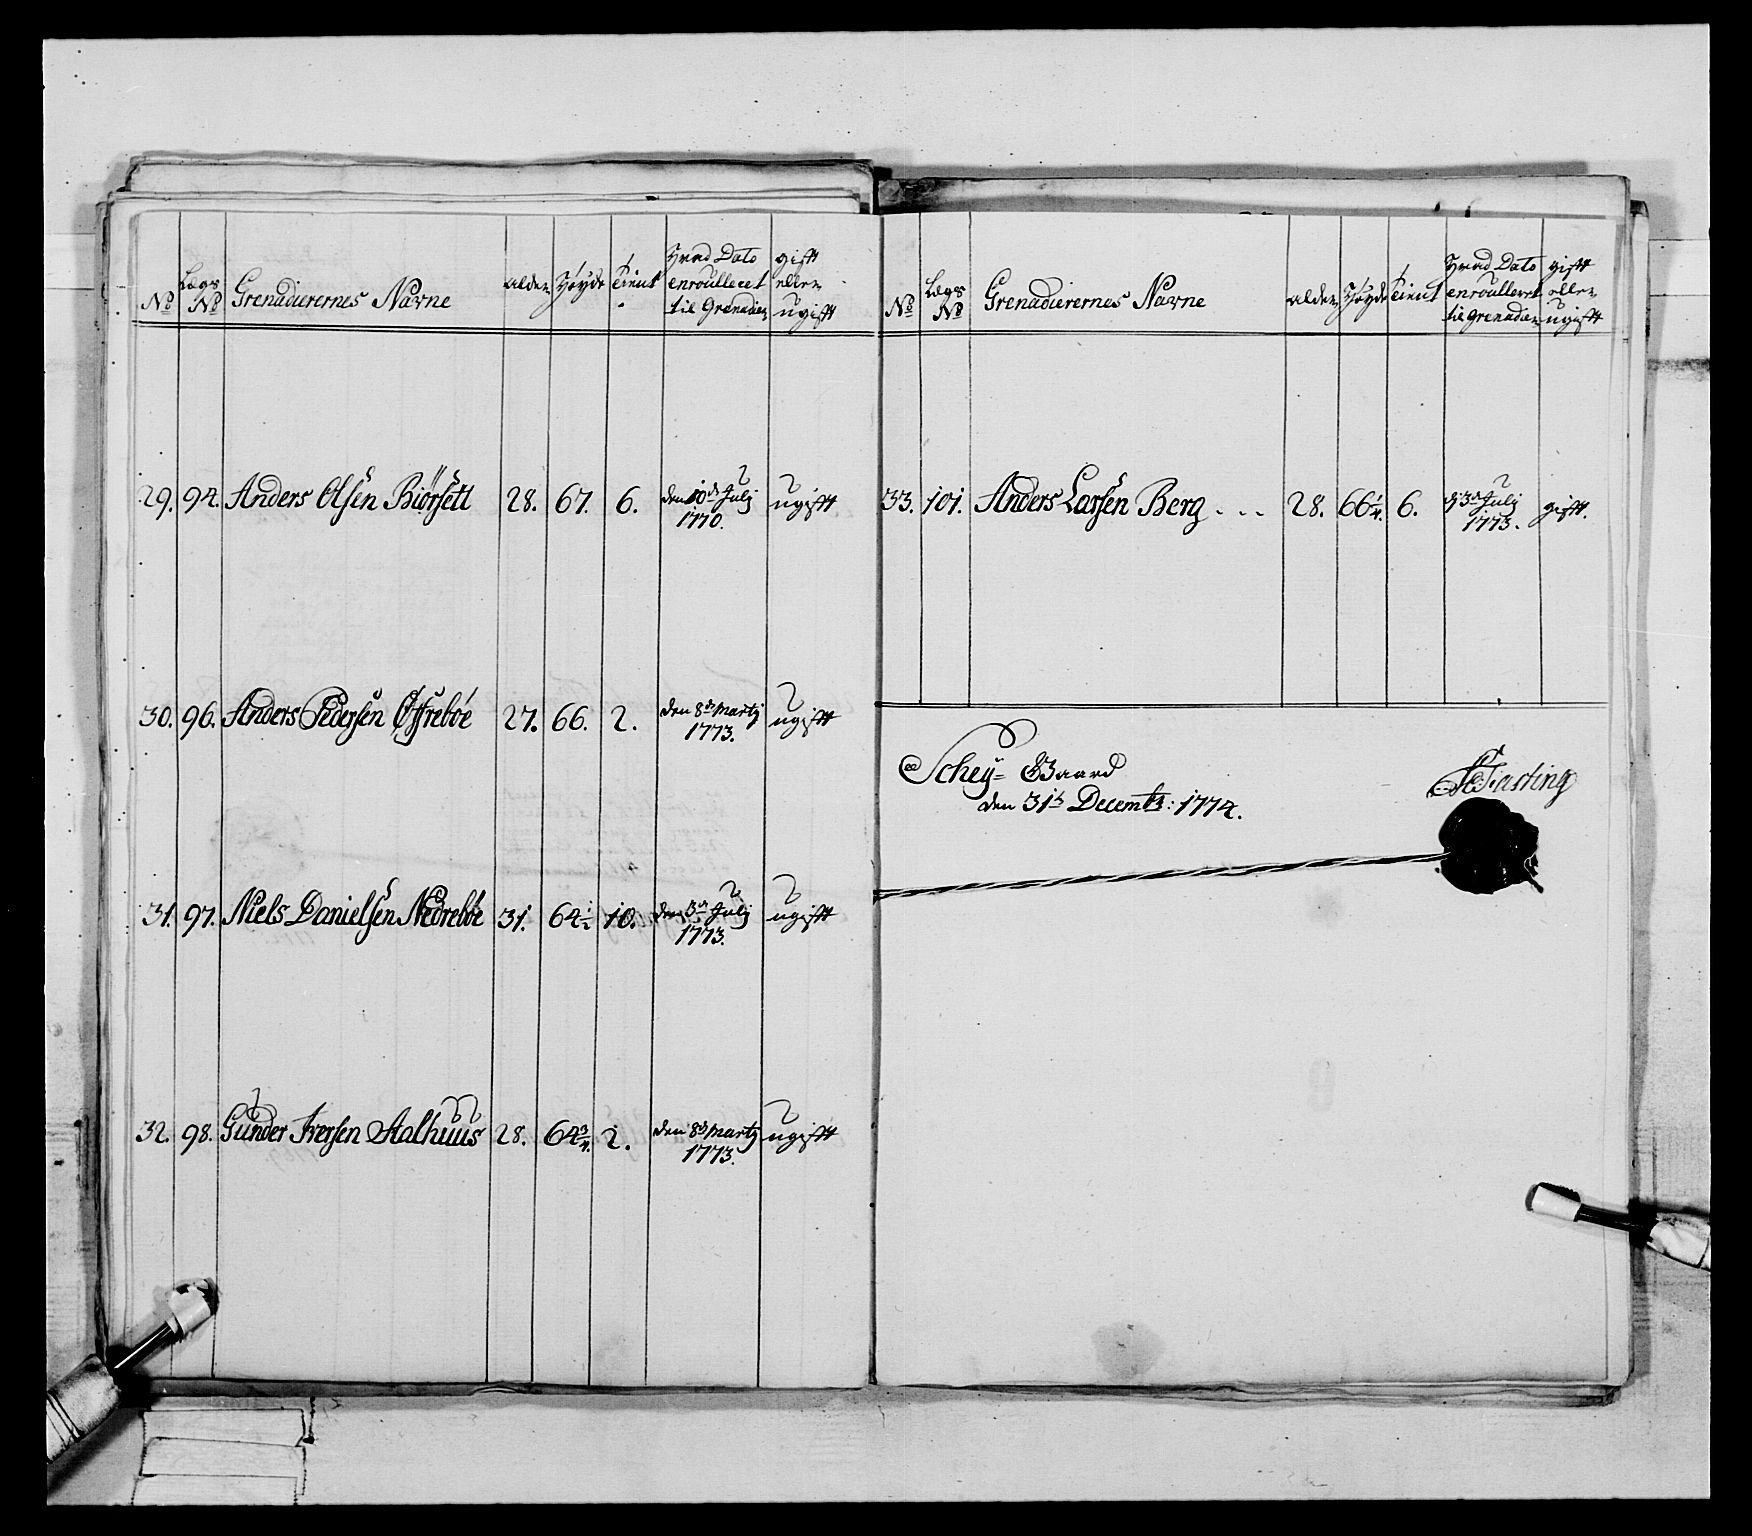 No Lægs No Grenadierernes Navne alder Høyde tient Hvad Dato enroulleret til Grenadier gift eller ugift
29. 94. Anders Olsen Biörsett 28. 67. 6. den 10de Julij 1770. ugift
30. 96. Anders Pedersen Øffreböe 27. 66. 2. den 8de Martij 1773. ugift
31. 97. Niels Danielsen Nedreböe 31. 64½ 10. den 3de Julij 1773. ugift
32. 98. Gunder Iversen Aalhuus 28. 64¾ 2. den 8de Martij 1773. ugift
No Lægs No Grenadierernes Navne alder Høyde tient Hvad Dato enroulleret til Grenadier gift eller ugift
33. 101. Anders Larsen Berg . . . 28. 66¼. 6. d 3de Julij 1773. gift.
Schey= Gaard
den 31te Decembr: 1774.
Fiasting